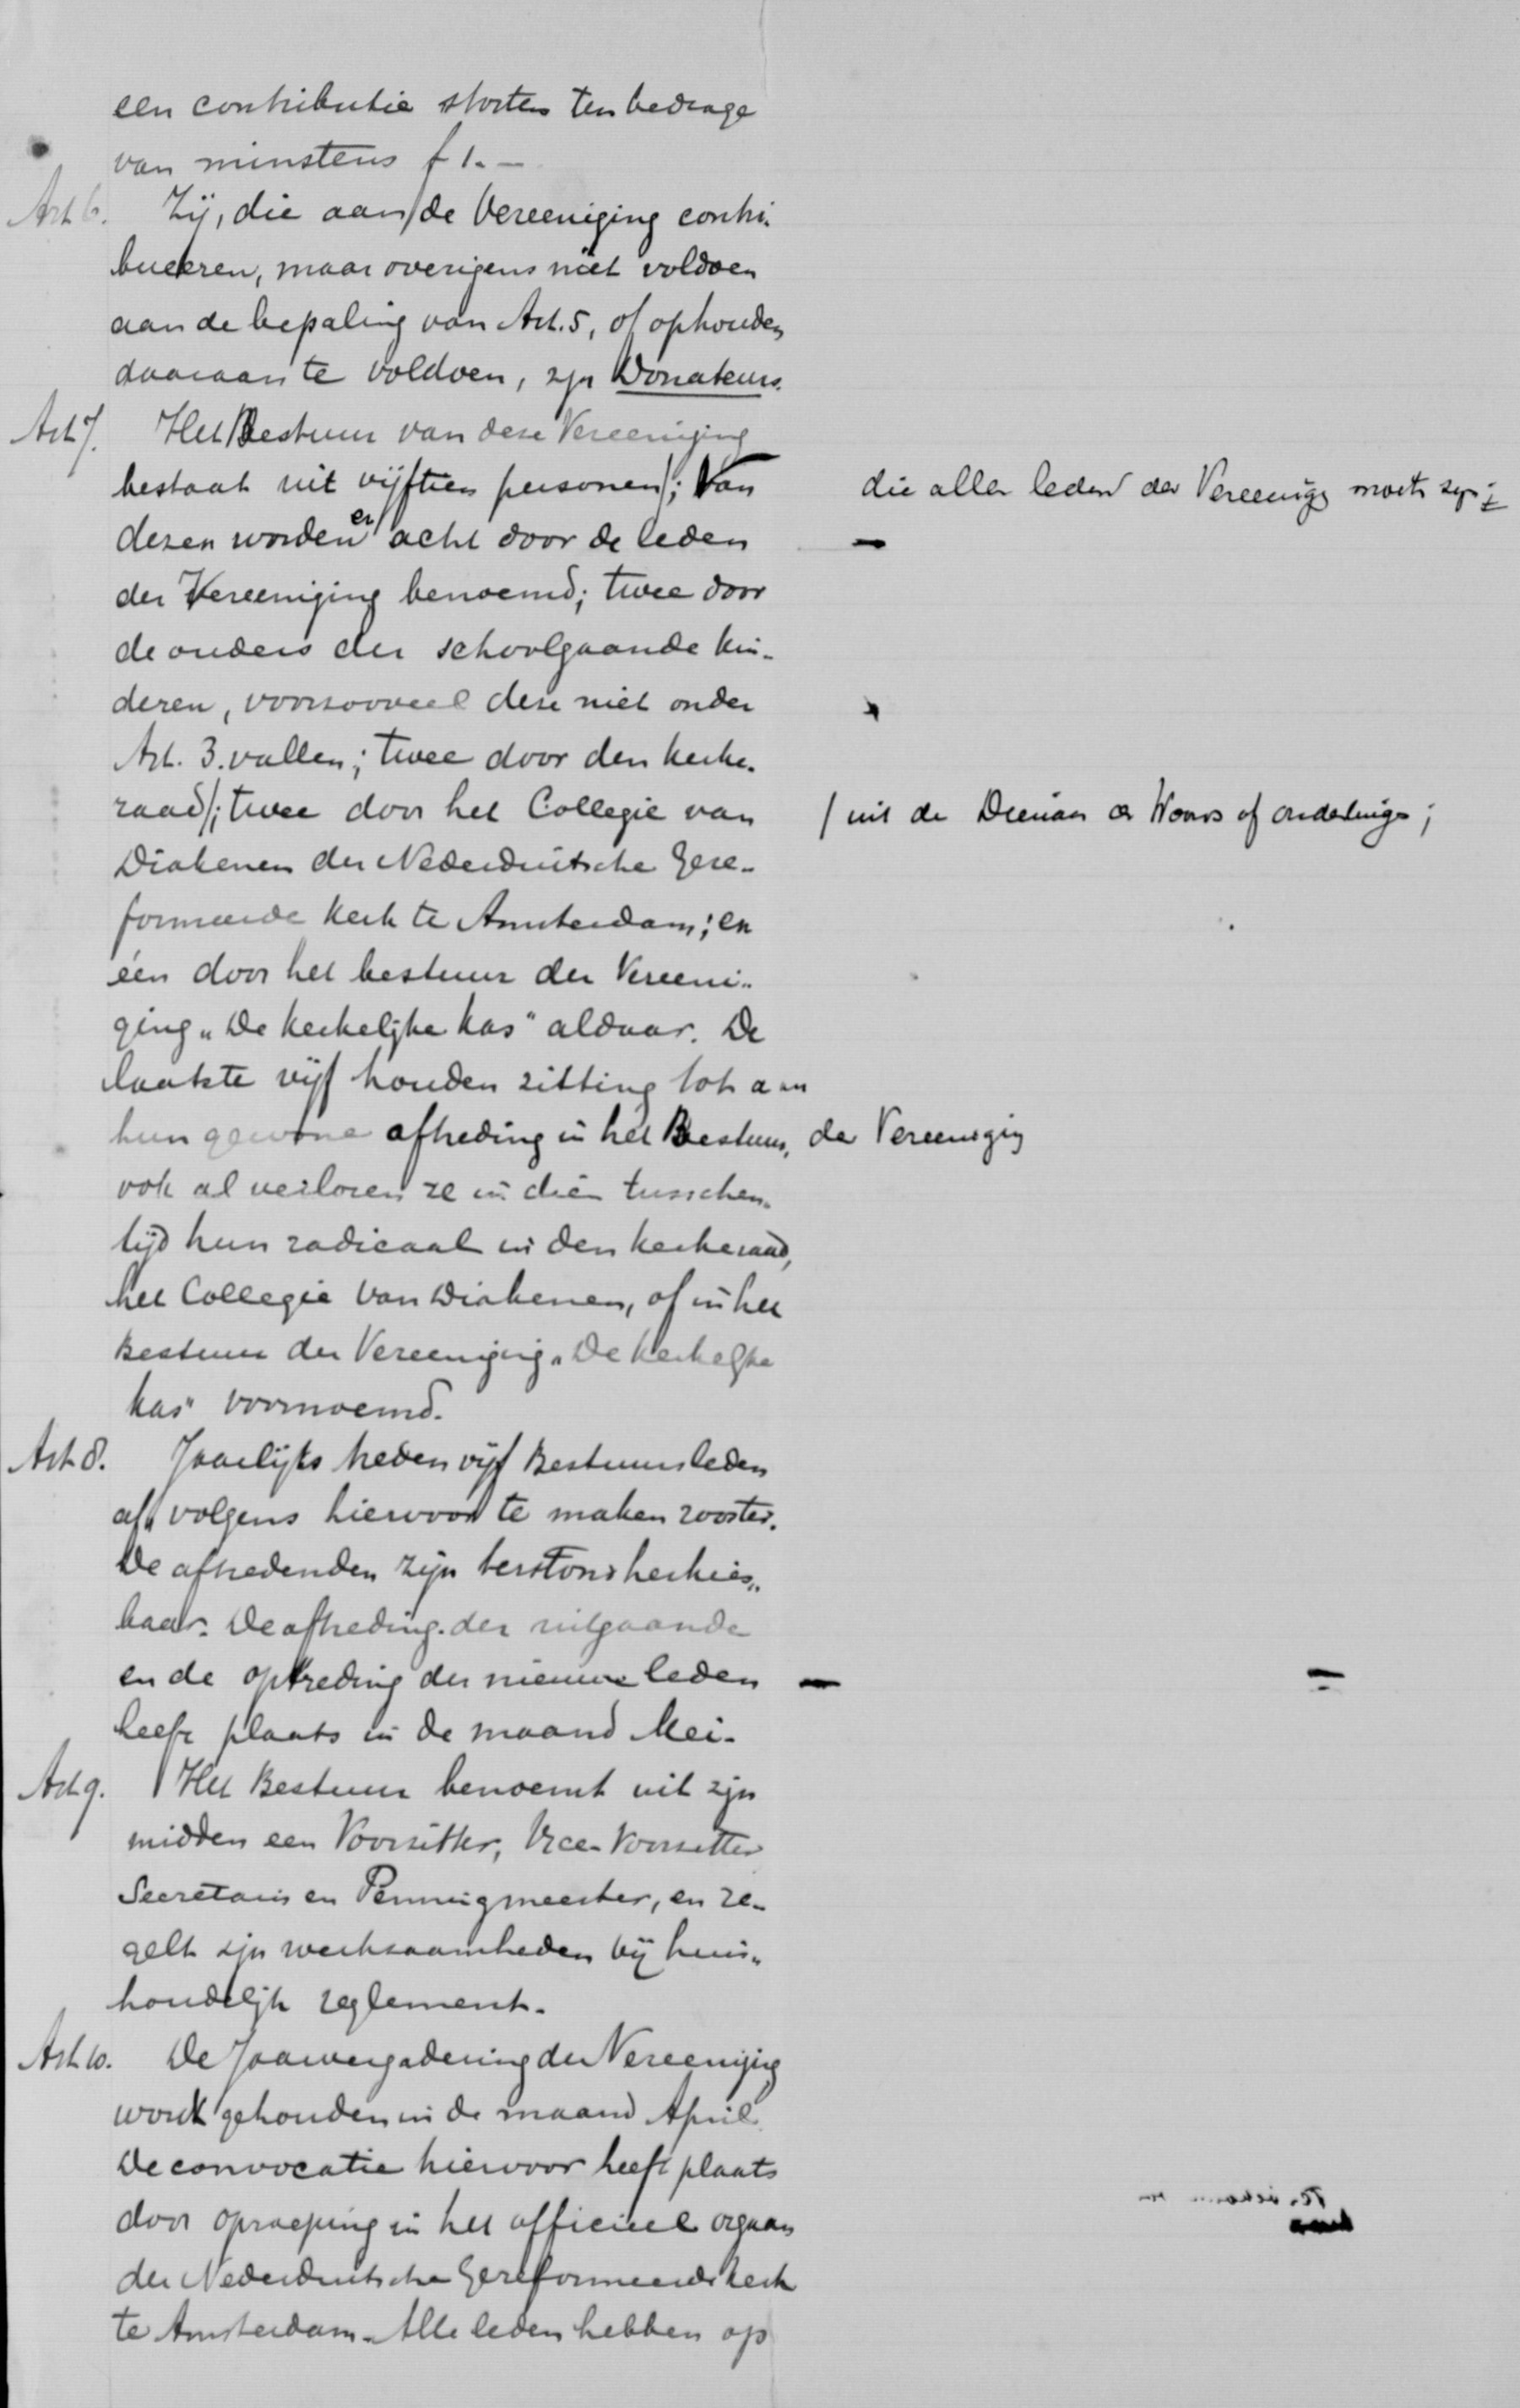 een contributie storten ten bedrage
van minstens f 1.–
Art. 6. Zij, die aan de Vereeniging contri-
bueeren, maar overigens niet voldoen
aan de bepaling van Art. 5, of ophouden
daaraan te voldoen, zijn Donateurs.
Art. 7. Het Bestuur van deze Vereeniging
bestaat uit vijftien personen/; Van die allen leden der Vereenigg moeten zijn;
dezen worden er acht door de leden –
der Vereeniging benoemd; twee door
de ouders der schoolgaande kin-
deren, voorzooveel deze niet onder
Art. 3. vallen; twee door den kerke-
raad/; twee door het Collegie van / uit de Dienaren des Woords of ouderlingen;
Diakenen der Nederduitsche Gere-
formeerde kerk te Amsterdam; en
één door het bestuur der Vereeni-
ging „De kerkelijke kas" aldaar. De
laatste vijf houden zitting tot aan
hun gewone aftreding in het Bestuur, der Vereeniging
ook al verloren ze in dien tusschen-
tijd hun radicaal in den kerkeraad,
het Collegie van Diakenen, of in het
Bestuur der Vereeniging „De kerkelijke
kas" voornoemd.
Art. 8. Jaarlijks treden vijf Bestuursleden
af, volgens hiervoor te maken rooster.
De aftredenden zijn terstond herkies-
baar. De aftreding der uitgaande
en de optreding der nieuwe leden –
heeft plaats in de maand Mei.
Art. 9. Het Bestuur benoemt uit zijn
midden een Voorzitter, Vice-Voorzitter
Secretaris en Penningmeester, en re-
gelt zijn werkzaamheden bij huis-
houdelijk reglement.
Art. 10. De Jaarvergadering der Vereeniging
wordt gehouden in de maand April.
De convocatie hiervoor heeft plaats
door oproeping in het officieel orgaan
der Nederduitsche Gereformeerde kerk
te Amsterdam. Alle leden hebben op